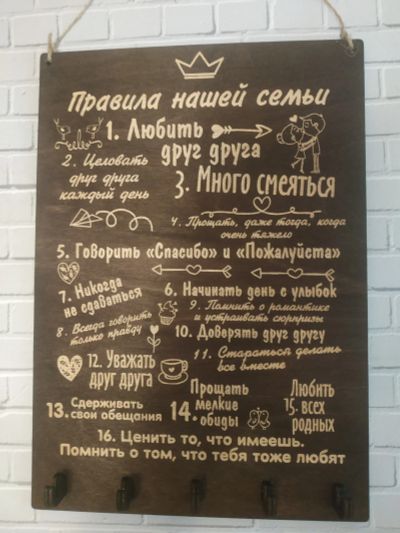 Правила нашей семьи
1. Любить
друг друга
2. Целовать
друг друга
каждый день
3. Много смеяться
4. Прощать, даже тогда, когда
очень тяжело
5. Говорить «Спасибо» и «Пожалуйста»
6. Начинать день с улыбок
7. Никогда
не сдаваться
8. Всегда говорить
только правду
9. Помнить о романтике
и устраивать сюрпризы
10. Доверять друг другу
11. Стараться делать
все вместе
12. Уважать
друг друга
13. Сдерживать
свои обещания
14. Прощать
мелкие
обиды
15. Любить
всех
родных
16. Ценить то, что имеешь.
Помнить о том, что тебя тоже любят